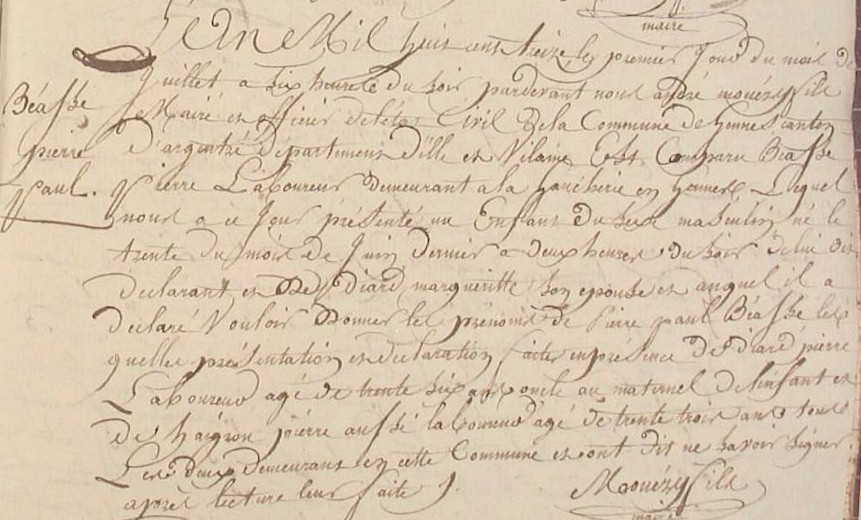 maire
L'An Mil huit cent treize, les premier Jour du mois de
Juillet a six heures du soir pardevant nous andré mouézy fils
Maire et officier de létat Civil de la Commune de Gennes canton
D'argentré Département D'ille et Vilaine Est Comparu Béasse
Pierre Laboureur Demeurant a la hanchérie en Gennes Lequel
nous a ce Jour présenté un Enfant du sexe masculin né le
trente du mois de Juin dernier a deux heures du soir de lui dit
déclarant et De Diard margueritte son epouse et auquel il a
declaré Vouloir Donner les prénoms de Pierre paul Béasse les
quelles présentation et declaration faites en présence De diard pierre
Laboureur agé de trente six ans oncle au maternel de linfant et
de haigron pierre aussi laboureur agé de trente trois ans tous
Les deux demeurans en cette Commune et ont dit ne savoir signer
apres lecture leur faite J.
Mouézy fils
maire
Béasse
pierre
Paul.